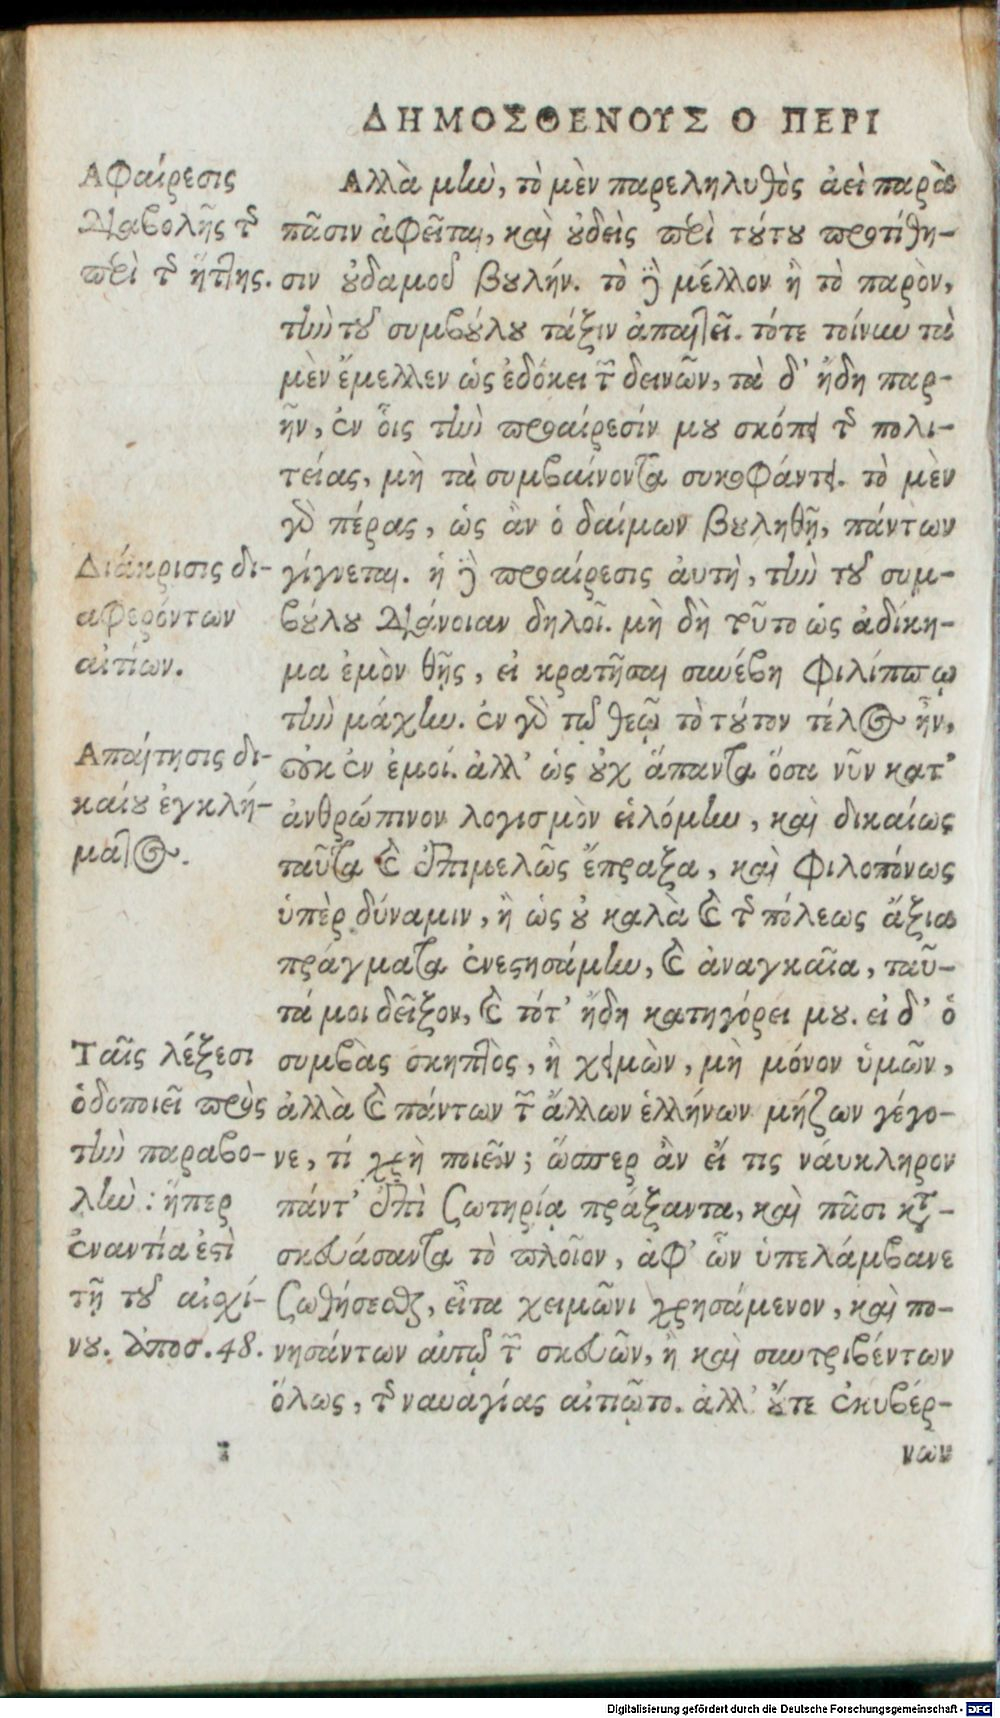 ΔΗΜΟΣΘΕΝΟΥΣ Ο ΠΕΡΙ
Αφαίρεσις
διαβολῆς τῆς
περὶ τῆς ἥττης.
Διάκρισις δι-
αφερόντων
αἰτίων.
Απαίτησις δι-
καίου ἐγκλή-
ματος.
Ταῖς λέξεσι
ὁδοποιεῖ πρὸς
τὴν παραβο-
λὴν: ἥπερ
ἐναντία ἐστὶ
τῇ τοῦ αἰσχί-
νου. ἀποσ. 48.
Αλλὰ μὴν, τὸ μὲν παρεληλυθὸς ἀεὶ παρὰ
πᾶσιν ἀφεῖται, καὶ οὐδεὶς περὶ τούτου προτίθη-
σιν οὐδαμοῦ βουλήν. τὸ δὲ μέλλον ἢ τὸ παρὸν,
τὴν τοῦ συμβούλου τάξιν ἀπαιτεῖ. τότε τοίνυν τὰ
μὲν ἔμελλεν ὡς ἐδόκει τῶν δεινῶν, τὰ δ' ἤδη παρ-
ῆν, ἐν οἷς τὴν προαίρεσίν μου σκόπει τῆς πολι-
τείας, μὴ τὰ συμβαίνοντα συκοφάντει. τὸ μὲν
γὰρ πέρας, ὡς ἂν ὁ δαίμων βουληθῇ, πάντων
γίγνεται. ἡ δὲ προαίρεσις ἀυτὴ, τὴν τοῦ συμ-
βούλου διάνοιαν δηλοῖ. μὴ δὴ τοῦτο ὡς ἀδίκη-
μα ἐμὸν θῇς, εἰ κρατῆσαι συνέβη Φιλίππῳ
τὴν μάχην. ἐν γὰρ τῷ θεῷ τὸ τούτου τέλος ἦν,
οὐκ ἐν ἐμοί. ἀλλ' ὡς οὐχ ἅπαντα ὅσα νῦν κατ'
ἀνθρώπινον λογισμὸν εἱλόμην, καὶ δικαίως
ταῦτα καὶ ἐπιμελῶς ἔπραξα, καὶ φιλοπόνως
ὑπὲρ δύναμιν, ἢ ὡς οὐ καλὰ καὶ τῆς πόλεως ἄξια
πράγματα ἐνεστησάμην, καὶ ἀναγκαῖα, ταῦ-
τά μοι δεῖξον, καὶ τότ' ἤδη κατηγόρει μου. εἰ δ' ὁ
συμβὰς σκηπτὸς, ἢ χειμὼν, μὴ μόνον ὑμῶν,
ἀλλὰ καὶ πάντων τῶν ἄλλων ἑλλήνων μήζων γέγο-
νε, τί χρὴ ποιεῖν; ὥσπερ ἂν εἴ τις νάυκληρον
πάντ' ἐπὶ σωτηρίᾳ πράξαντα, καὶ πᾶσι κατα-
σκευάσαντα τὸ πλοῖον, ἀφ' ὧν ὑπελάμβανε
σωθήσεσθαι, εἶτα χειμῶνι χρησάμενον, καὶ πο-
νησάντων αὐτῷ τῶν σκευῶν, ἢ καὶ συντριβέντων
ὅλως, τῆς ναυαγίας αἰτιῷτο. ἀλλ' οὔτε ἐκυβέρ-
νων